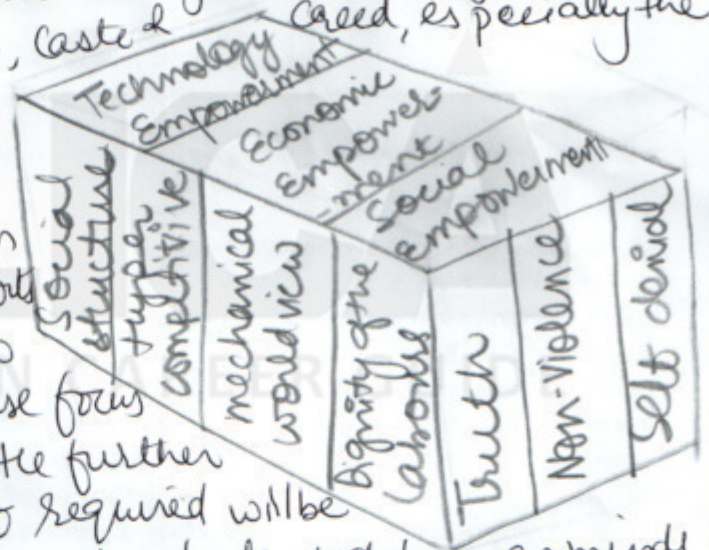 , Caste & Creed, especially the
Technology
Empowerment
Economic
Empower-
-ment
Social
Empowerment
Social
structure
Hyper
competitive
mechanical
world view
Dignity of the
Labours
Truth
Non-Violence
Self denial
focus
further
required will be